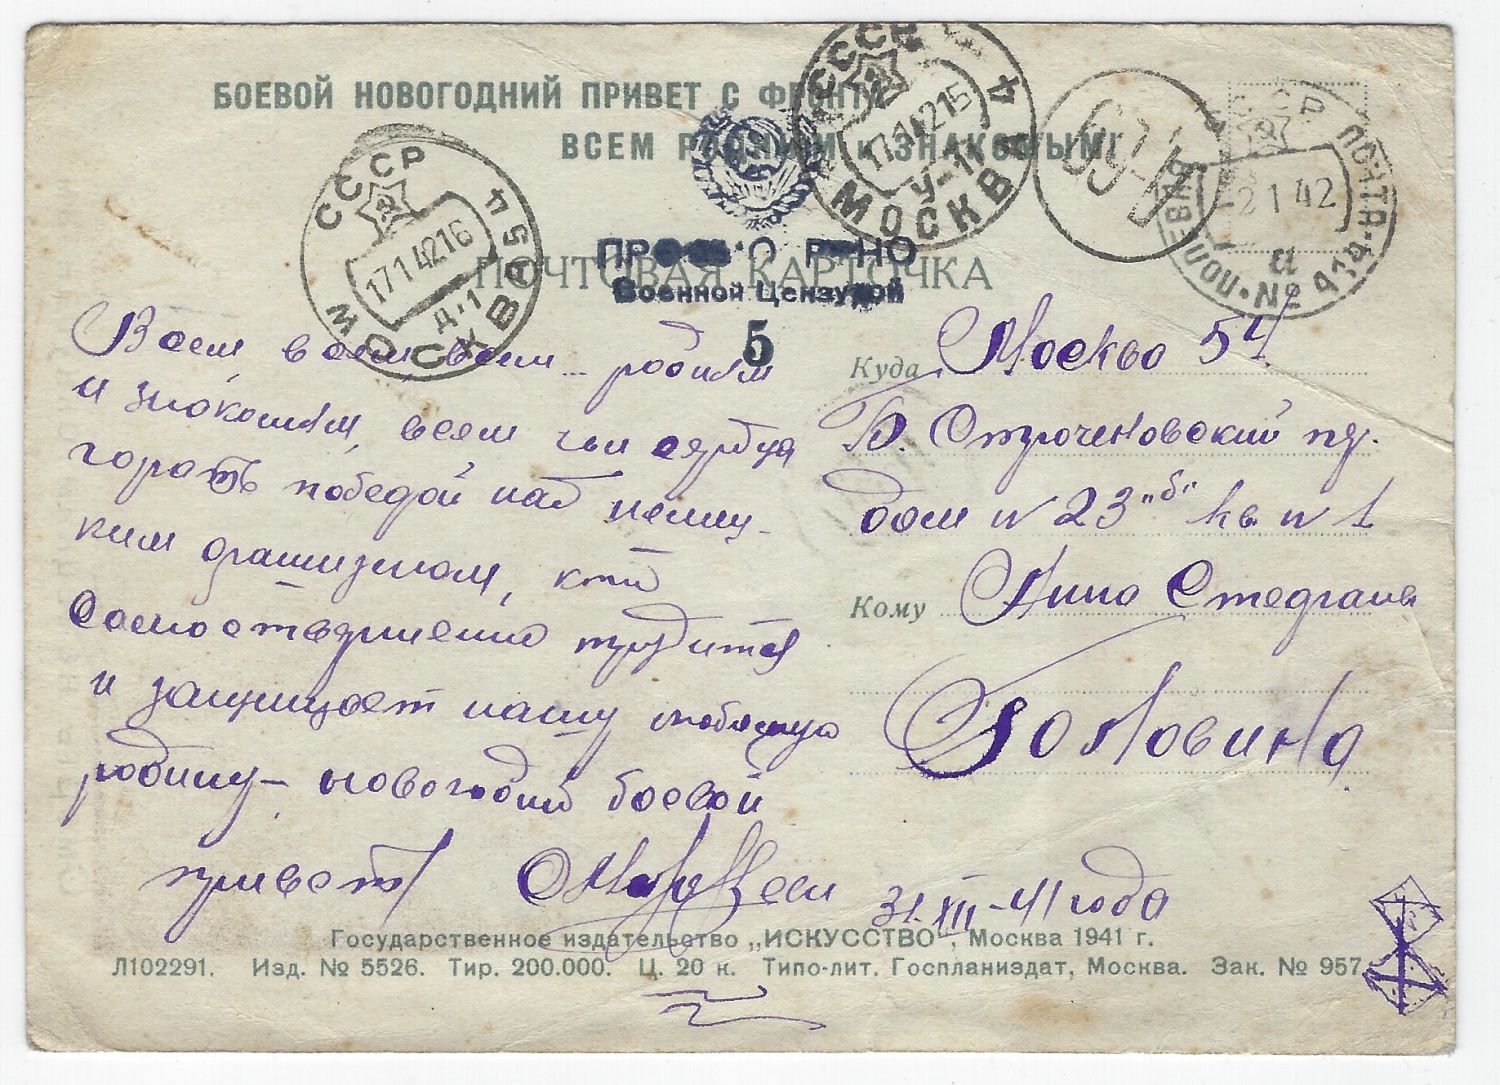 БОЕВОЙ НОВОГОДНИЙ ПРИВЕТ С ФРОНТА
ВСЕМ РОДНЫМ и ЗНАКОМЫМ!
СССР
17 1 42 16
Д-1
МОСКВА 54
СССР
17 1 42 15
У-1
МОСКВА 4
СССР
ПОЧТА
2 1 42
а
№ 414
Военной Цензурой
5
ПОЧТОВАЯ КАРТОЧКА
Всем, всем, всем родным
и знакомым, всем чьи сердца
горят победой над немец-
ким фашизмом, кто
самоотверженно трудится
и защищает нашу любимую
родину — новогодний боевой
привет!
31.XII-41 года
Куда Москва 54
Б. Строченовский пер.
дом N 23 "б" кв. N 1
Кому Нина Стефановна
Головина
Государственное издательство „ИСКУССТВО", Москва 1941 г.
Л102291. Изд. № 5526. Тир. 200.000. Ц. 20 к. Типо-лит. Госпланиздат, Москва. Зак. № 957.